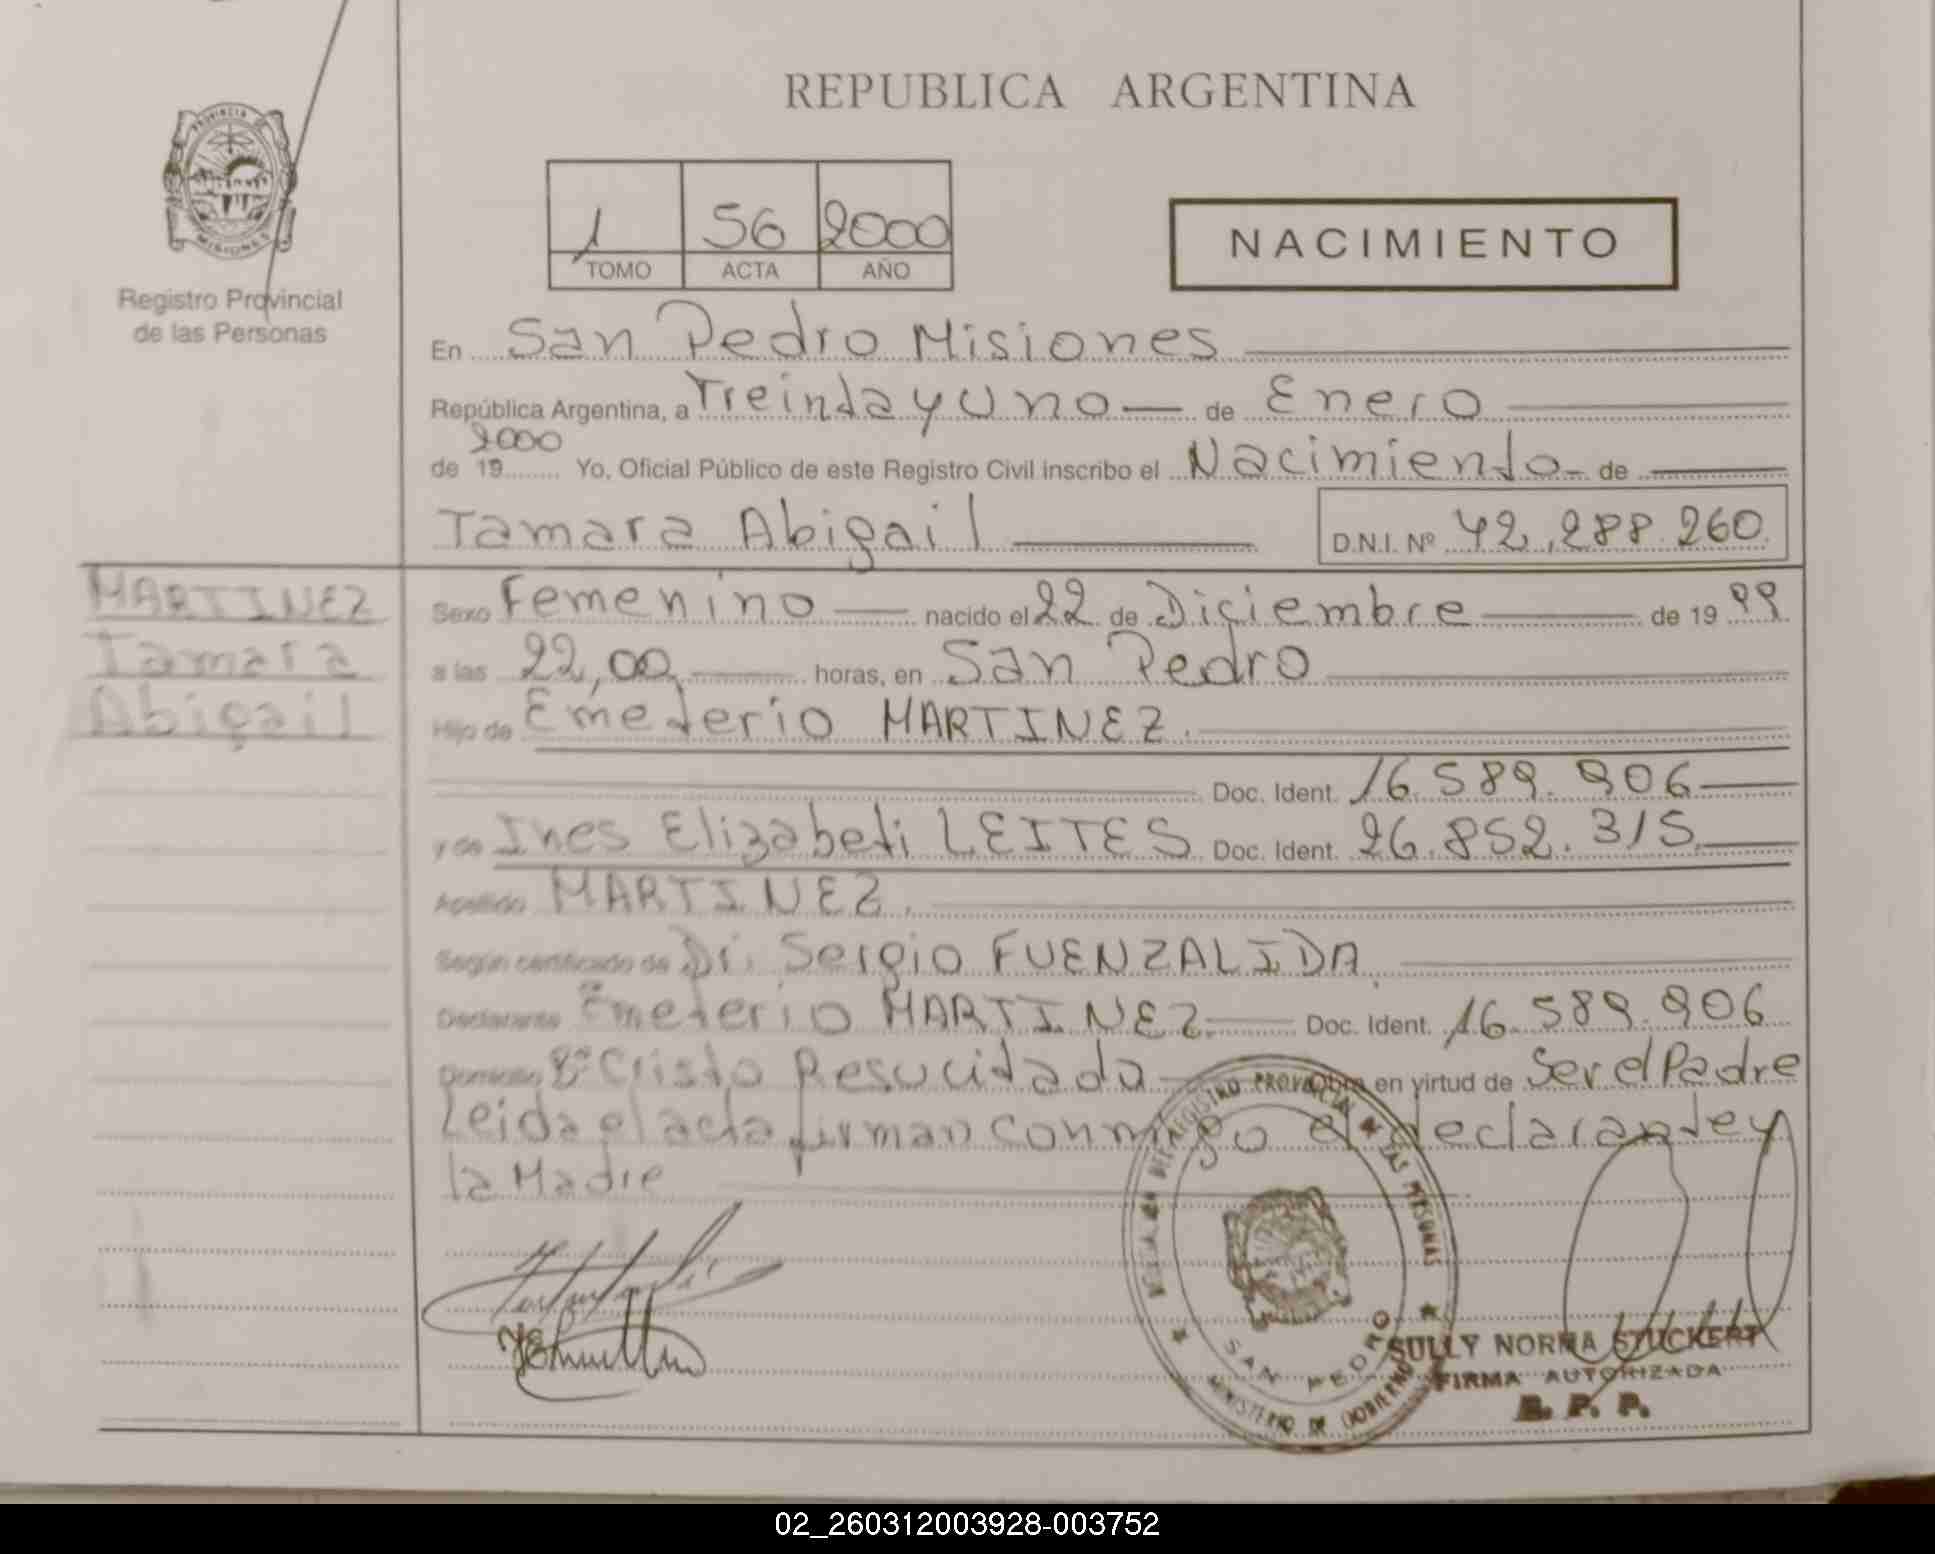 REPUBLICA ARGENTINA
PROVINCIA
MISIONES
Registro Provincial
de las Personas
1 56 2000
TOMO ACTA AÑO
NACIMIENTO
En San Pedro Misiones
República Argentina, a Treinta y uno de Enero
2000
de 19 Yo, Oficial Público de este Registro Civil inscribo el Nacimiento de
Tamara Abigail D.N.I. Nº 42.288.260
MARTINEZ
Tamara
Abigail
Sexo Femenino nacido el 22 de Diciembre de 19 99
a las 22,00 horas, en San Pedro
Hijo de Emeterio MARTINEZ
Doc. Ident. 16.589.906
y de Ines Elizabeti LEITES Doc. Ident. 26.852.315
Apellido MARTINEZ
Según certificado de Dr. Sergio FUENZALIDA
Declarante Emeterio MARTINEZ Doc. Ident. 16.589.906
Domicilio Bº Cristo Resucitado Obra en virtud de Ser el Padre
Leida el acta firman conmigo el declarante y
la Madre
REGISTRO PROVINCIAL DE LAS PERSONAS
SAN PEDRO
MINISTERIO DE GOBIERNO
SULLY NORMA STUCKERT
FIRMA AUTORIZADA
R. P. P.
02_260312003928-003752